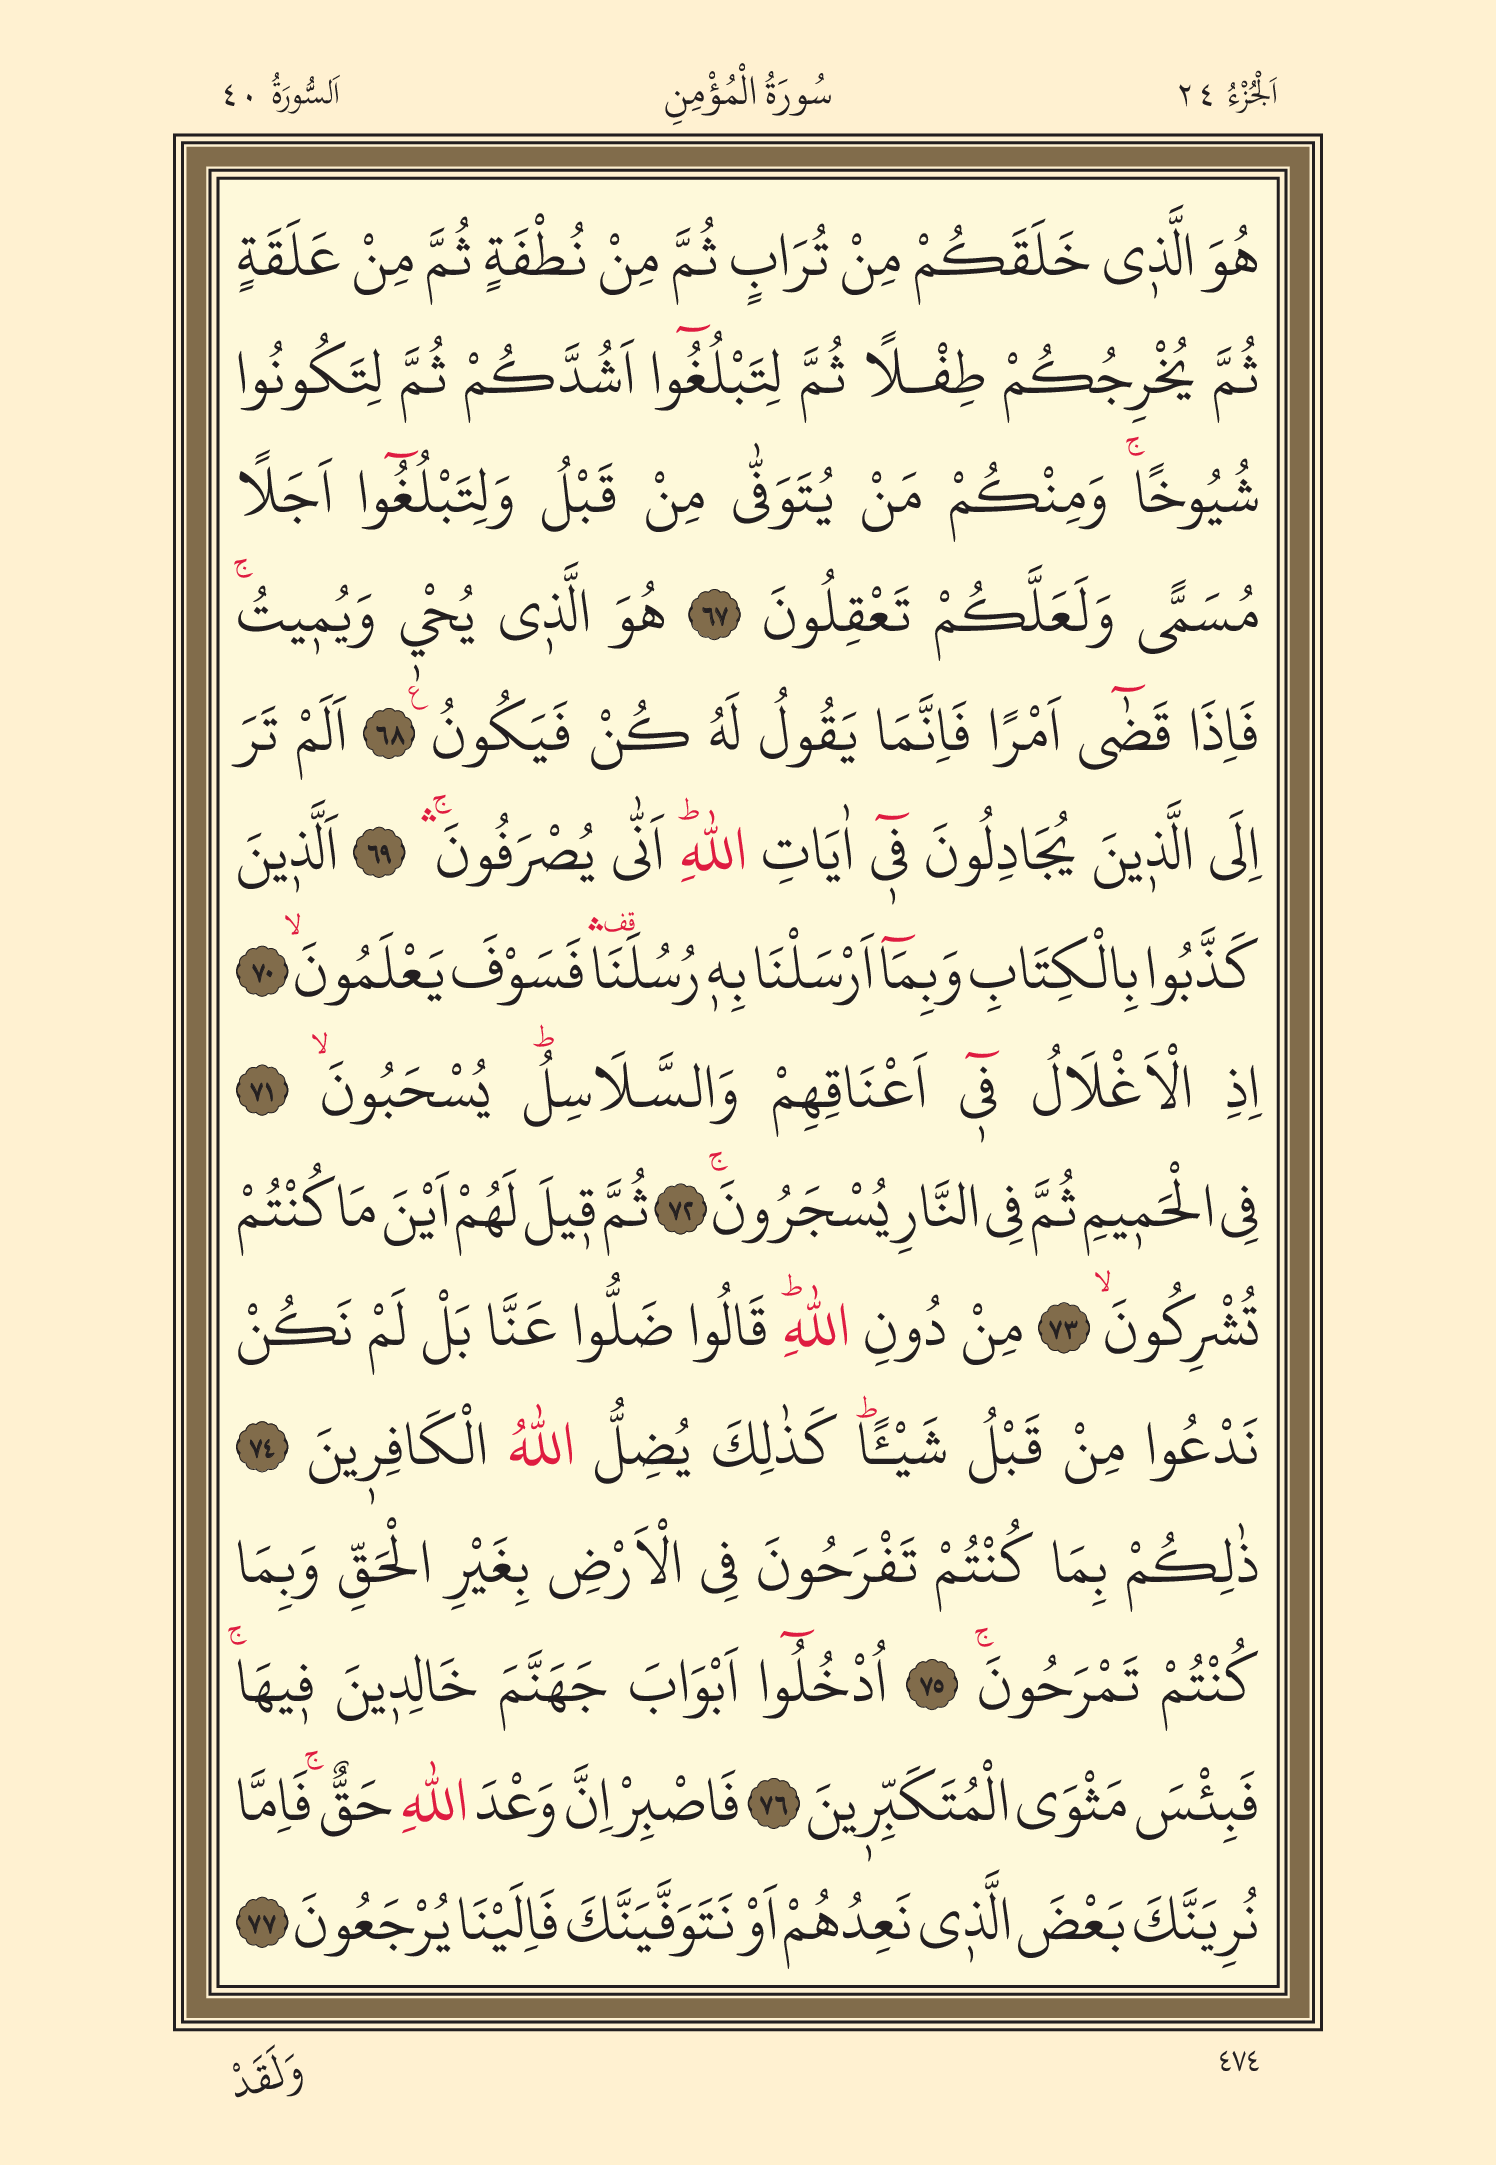 اَلْجُزْءُ ٢٤ سُورَةُ الْمُؤْمِنِ اَلسُّورَةُ ٤٠
هُوَ الَّذ۪ى خَلَقَكُمْ مِنْ تُرَابٍ ثُمَّ مِنْ نُطْفَةٍ ثُمَّ مِنْ عَلَقَةٍ
ثُمَّ يُخْرِجُكُمْ طِفْلًا ثُمَّ لِتَبْلُغُٓوا اَشُدَّكُمْ ثُمَّ لِتَكُونُوا
شُيُوخًاۚ وَمِنْكُمْ مَنْ يُتَوَفّٰى مِنْ قَبْلُ وَلِتَبْلُغُٓوا اَجَلًا
مُسَمًّى وَلَعَلَّكُمْ تَعْقِلُونَ ٦٧ هُوَ الَّذ۪ى يُحْي۪ وَيُم۪يتُۚ
فَاِذَا قَضٰٓى اَمْرًا فَاِنَّمَا يَقُولُ لَهُ كُنْ فَيَكُونُ ع ٦٨ اَلَمْ تَرَ
اِلَى الَّذ۪ينَ يُجَادِلُونَ ف۪ٓى اٰيَاتِ اللّٰهِؕ اَنّٰى يُصْرَفُونَۚۛ ٦٩ اَلَّذ۪ينَ
كَذَّبُوا بِالْكِتَابِ وَبِمَٓا اَرْسَلْنَا بِه۪ رُسُلَنَا قفۛ فَسَوْفَ يَعْلَمُونَۙ ٧٠
اِذِ الْاَغْلَالُ ف۪ٓى اَعْنَاقِهِمْ وَالسَّلَاسِلُؕ يُسْحَبُونَۙ ٧١
فِى الْحَم۪يمِ ثُمَّ فِى النَّارِ يُسْجَرُونَۚ ٧٢ ثُمَّ ق۪يلَ لَهُمْ اَيْنَ مَا كُنْتُمْ
تُشْرِكُونَۙ ٧٣ مِنْ دُونِ اللّٰهِؕ قَالُوا ضَلُّوا عَنَّا بَلْ لَمْ نَكُنْ
نَدْعُوا مِنْ قَبْلُ شَيْـًٔاؕ كَذٰلِكَ يُضِلُّ اللّٰهُ الْكَافِر۪ينَ ٧٤
ذٰلِكُمْ بِمَا كُنْتُمْ تَفْرَحُونَ فِى الْاَرْضِ بِغَيْرِ الْحَقِّ وَبِمَا
كُنْتُمْ تَمْرَحُونَۚ ٧٥ اُدْخُلُٓوا اَبْوَابَ جَهَنَّمَ خَالِد۪ينَ ف۪يهَاۚ
فَبِئْسَ مَثْوَى الْمُتَكَبِّر۪ينَ ٧٦ فَاصْبِرْ اِنَّ وَعْدَ اللّٰهِ حَقٌّۚ فَاِمَّا
نُرِيَنَّكَ بَعْضَ الَّذ۪ى نَعِدُهُمْ اَوْ نَتَوَفَّيَنَّكَ فَاِلَيْنَا يُرْجَعُونَ ٧٧
٤٧٤ وَلَقَدْ